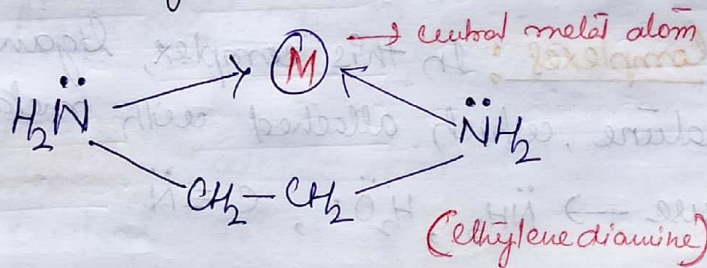 M → central metal atom
H₂N̈ N̈H₂
CH₂—CH₂
(ethylenediamine)